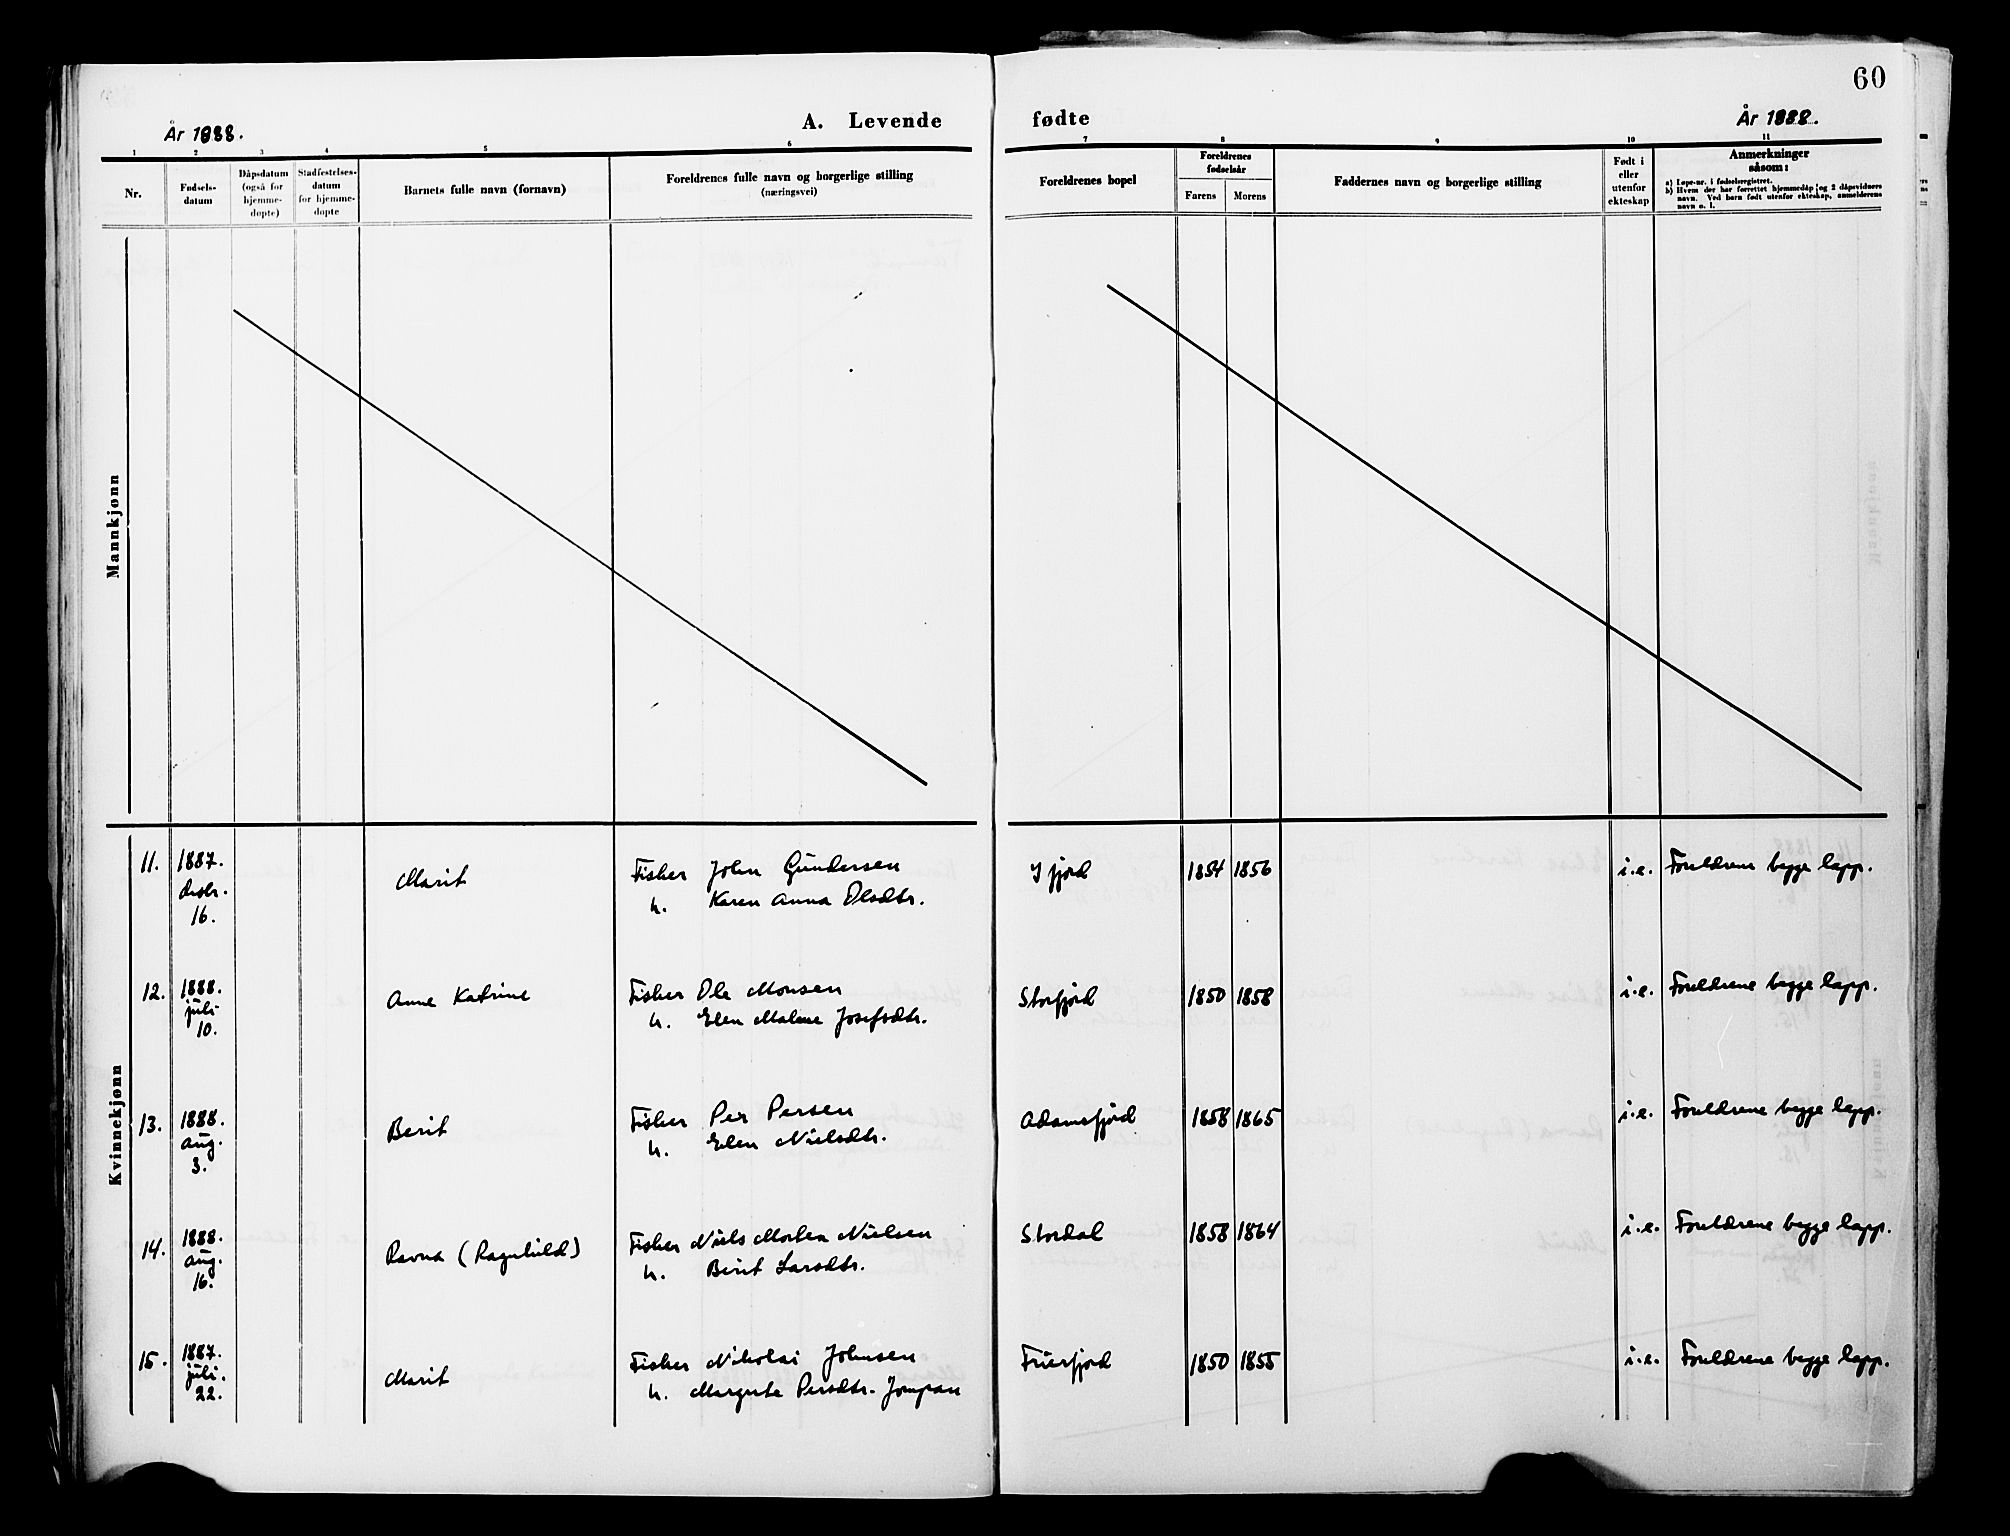 60
År 1888.
A. Levende
fødte
År 1888.
1 2 3 4 5 6 7 8 9 10 11
Nr.
Fødsels-
datum
Dåpsdatum
(også for
hjemme-
døpte)
Stadfestelses-
datum
for hjemme-
døpte
Barnets fulle navn (fornavn)
Foreldrenes fulle navn og borgerlige stilling
(næringsvei)
Foreldrenes bopel
Foreldrenes
fødselsår
Farens Morens
Faddernes navn og borgerlige stilling
Født i
eller
utenfor
ekteskap
Anmerkninger
såsom:
a) Løpe-nr. i fødselsregistret.
b) Hvem der har forrettet hjemmedåp og 2 dåpsvidners
navn. Ved barn født utenfor ekteskap, anmelderens
navn o. l.
Mannkjønn
Kvinnekjønn
11. 1887. Marit Fisker John Gundersen Ifjord 1854 1856 i.e. Foreldrene begge lapp.
desbr. h. Karen Anna Olsdtr.
16.
12. 1888. Anne Katrine Fisker Ole Monsen Storfjord 1850 1858 i.e. Foreldrene begge lapp.
juli h. Elen Malene Josefsdtr.
10.
13. 1888. Berit Fisker Per Persen Adamsfjord 1858 1865 i.e. Foreldrene begge lapp.
aug. h. Elen Nielsdtr.
3.
14. 1888. Ravna (Ragnhild) Fisker Niels Morten Nielsen Stordal 1858 1864 i.e. Foreldrene begge lapp.
aug. h. Berit Larsdtr.
16.
15. 1887. Marit Fisker Nikolai Johnsen Frierfjord 1850 1855 i.e. Foreldrene begge lapp.
juli. h. Margrete Persdtr. Jompan
22.